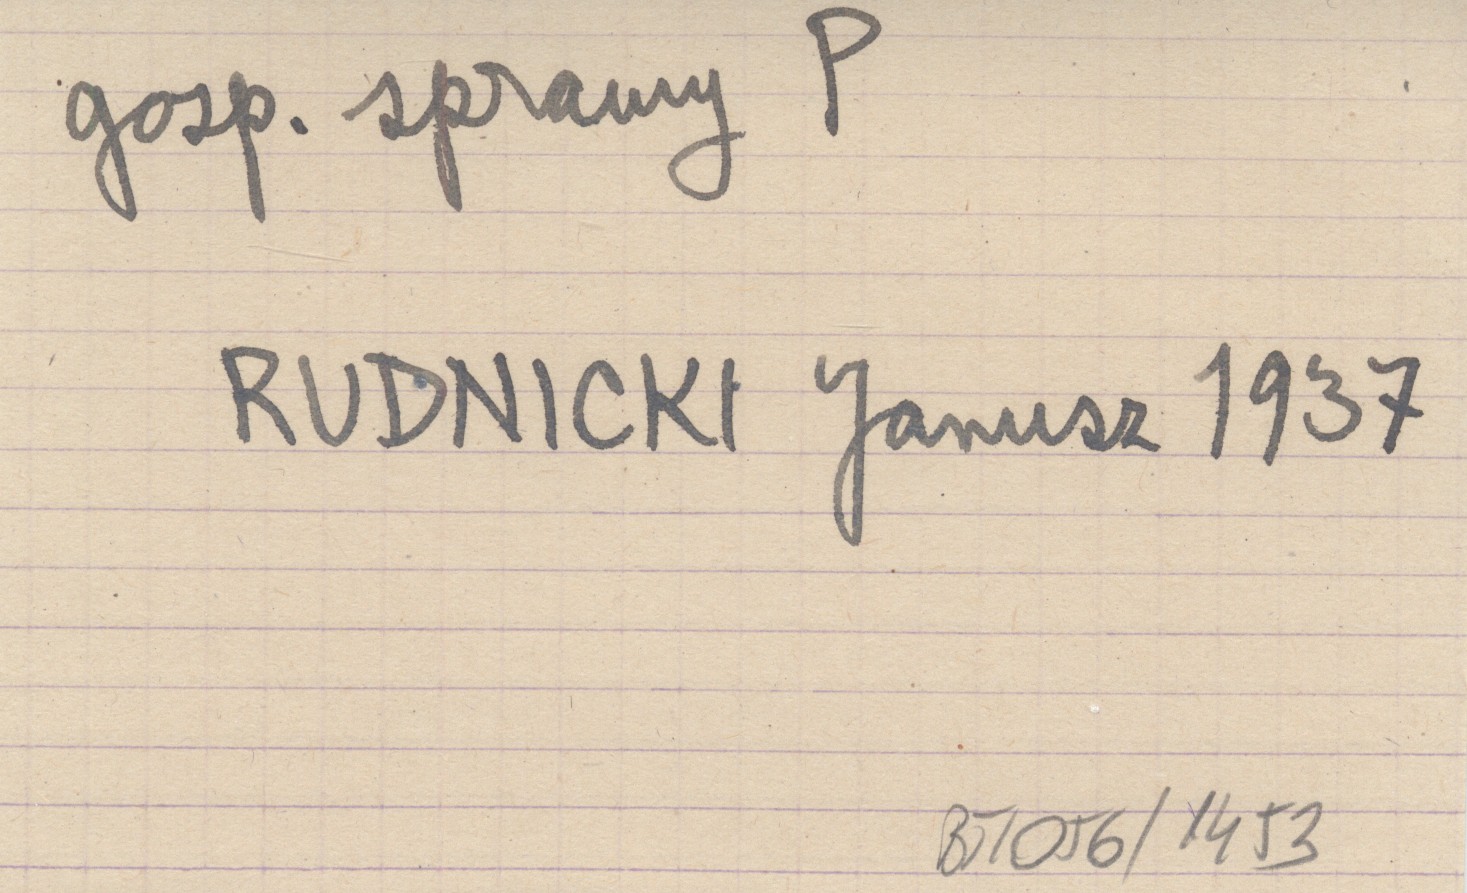 gosp. sprawy P
RUDNICKI Janusz 1937
BT1056/1453